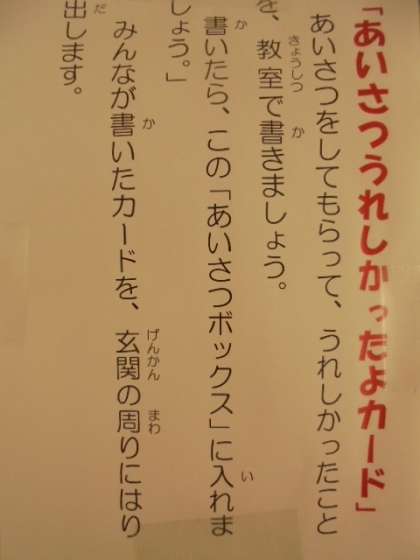 「あいさつうれしかったよカード」
あいさつをしてもらって、うれしかったこと
を、教室で書きましょう。
書いたら、この「あいさつボックス」に入れま
しょう。」
みんなが書いたカードを、玄関の周りにはり
出します。